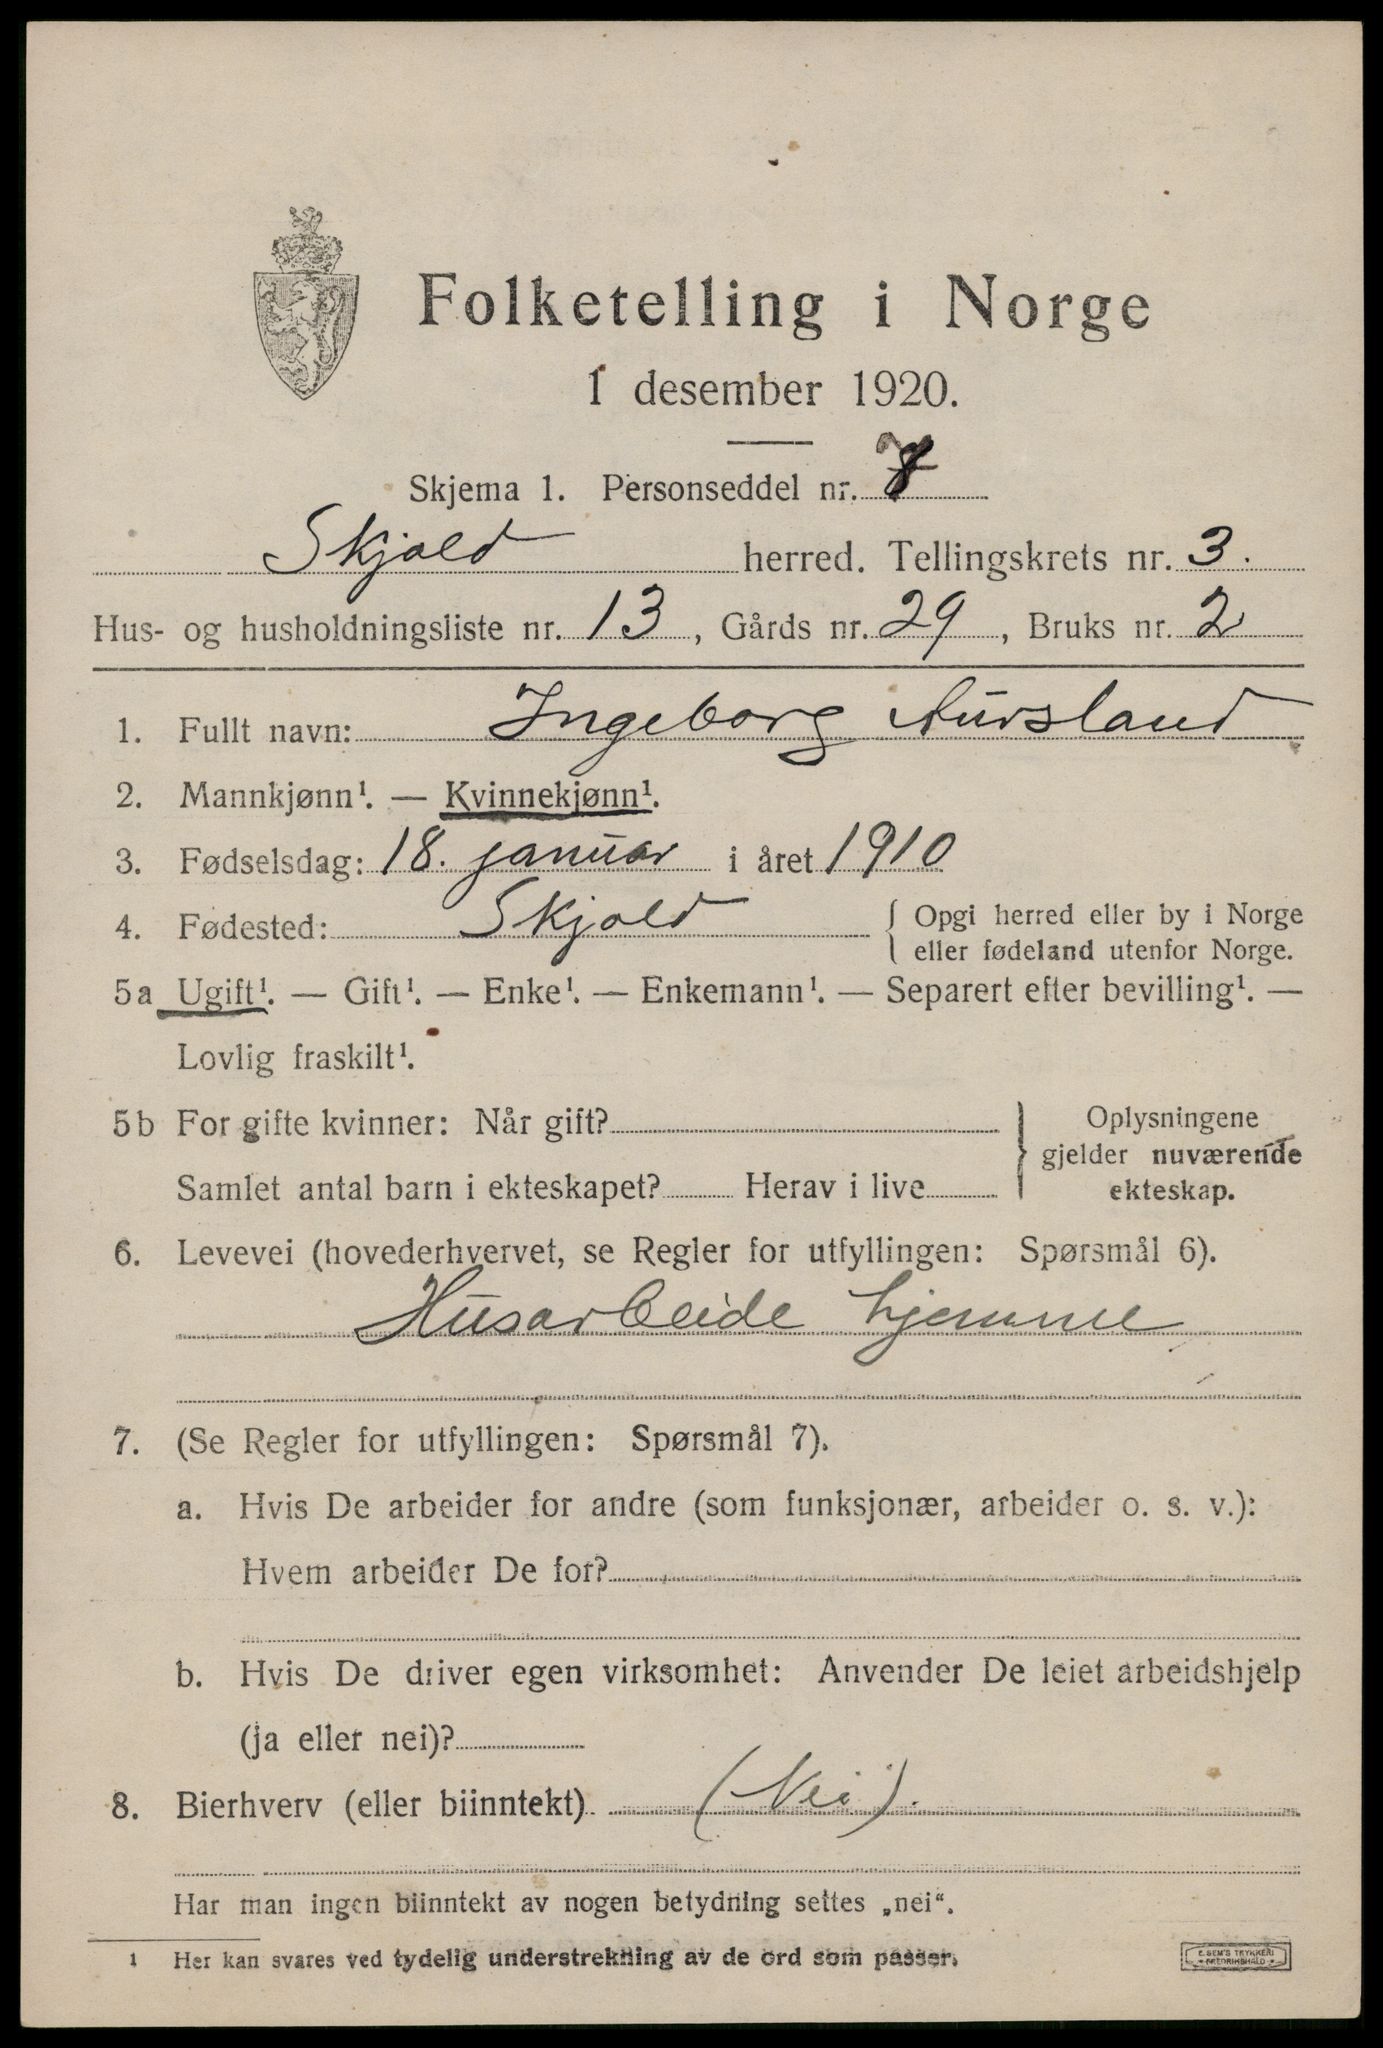 Folketelling i Norge
1 desember 1920.
Skjema 1. Personseddel nr.
Skjold herred. Tellingskrets nr. 3.
Hus- og husholdningsliste nr. 13, Gårds nr. 29, Bruks nr. 2
1. Fullt navn: Ingeborg Aursland
2. Mannkjønn¹. — Kvinnekjønn¹.
3. Fødselsdag: 18. januar i året 1910
4. Fødested: Skjold { Opgi herred eller by i Norge
eller fødeland utenfor Norge.
5a Ugift¹. — Gift¹. — Enke¹. — Enkemann¹. — Separert efter bevilling¹. —
Lovlig fraskilt¹.
5b For gifte kvinner: Når gift?
Samlet antal barn i ekteskapet? Herav i live
Oplysningene
gjelder nuværende
ekteskap.
6. Levevei (hovederhvervet, se Regler for utfyllingen: Spørsmål 6).
Husarbeide hjemme
7. (Se Regler for utfyllingen: Spørsmål 7).
a. Hvis De arbeider for andre (som funksjonær, arbeider o. s. v.):
Hvem arbeider De for?
b. Hvis De driver egen virksomhet: Anvender De leiet arbeidshjelp
(ja eller nei)?
8. Bierhverv (eller biinntekt) (Nei).
Har man ingen biinntekt av nogen betydning settes „nei“.
1 Her kan svares ved tydelig understrekning av de ord som passer.
E. SEM'S TRYKKERI
FREDRIKSHALD